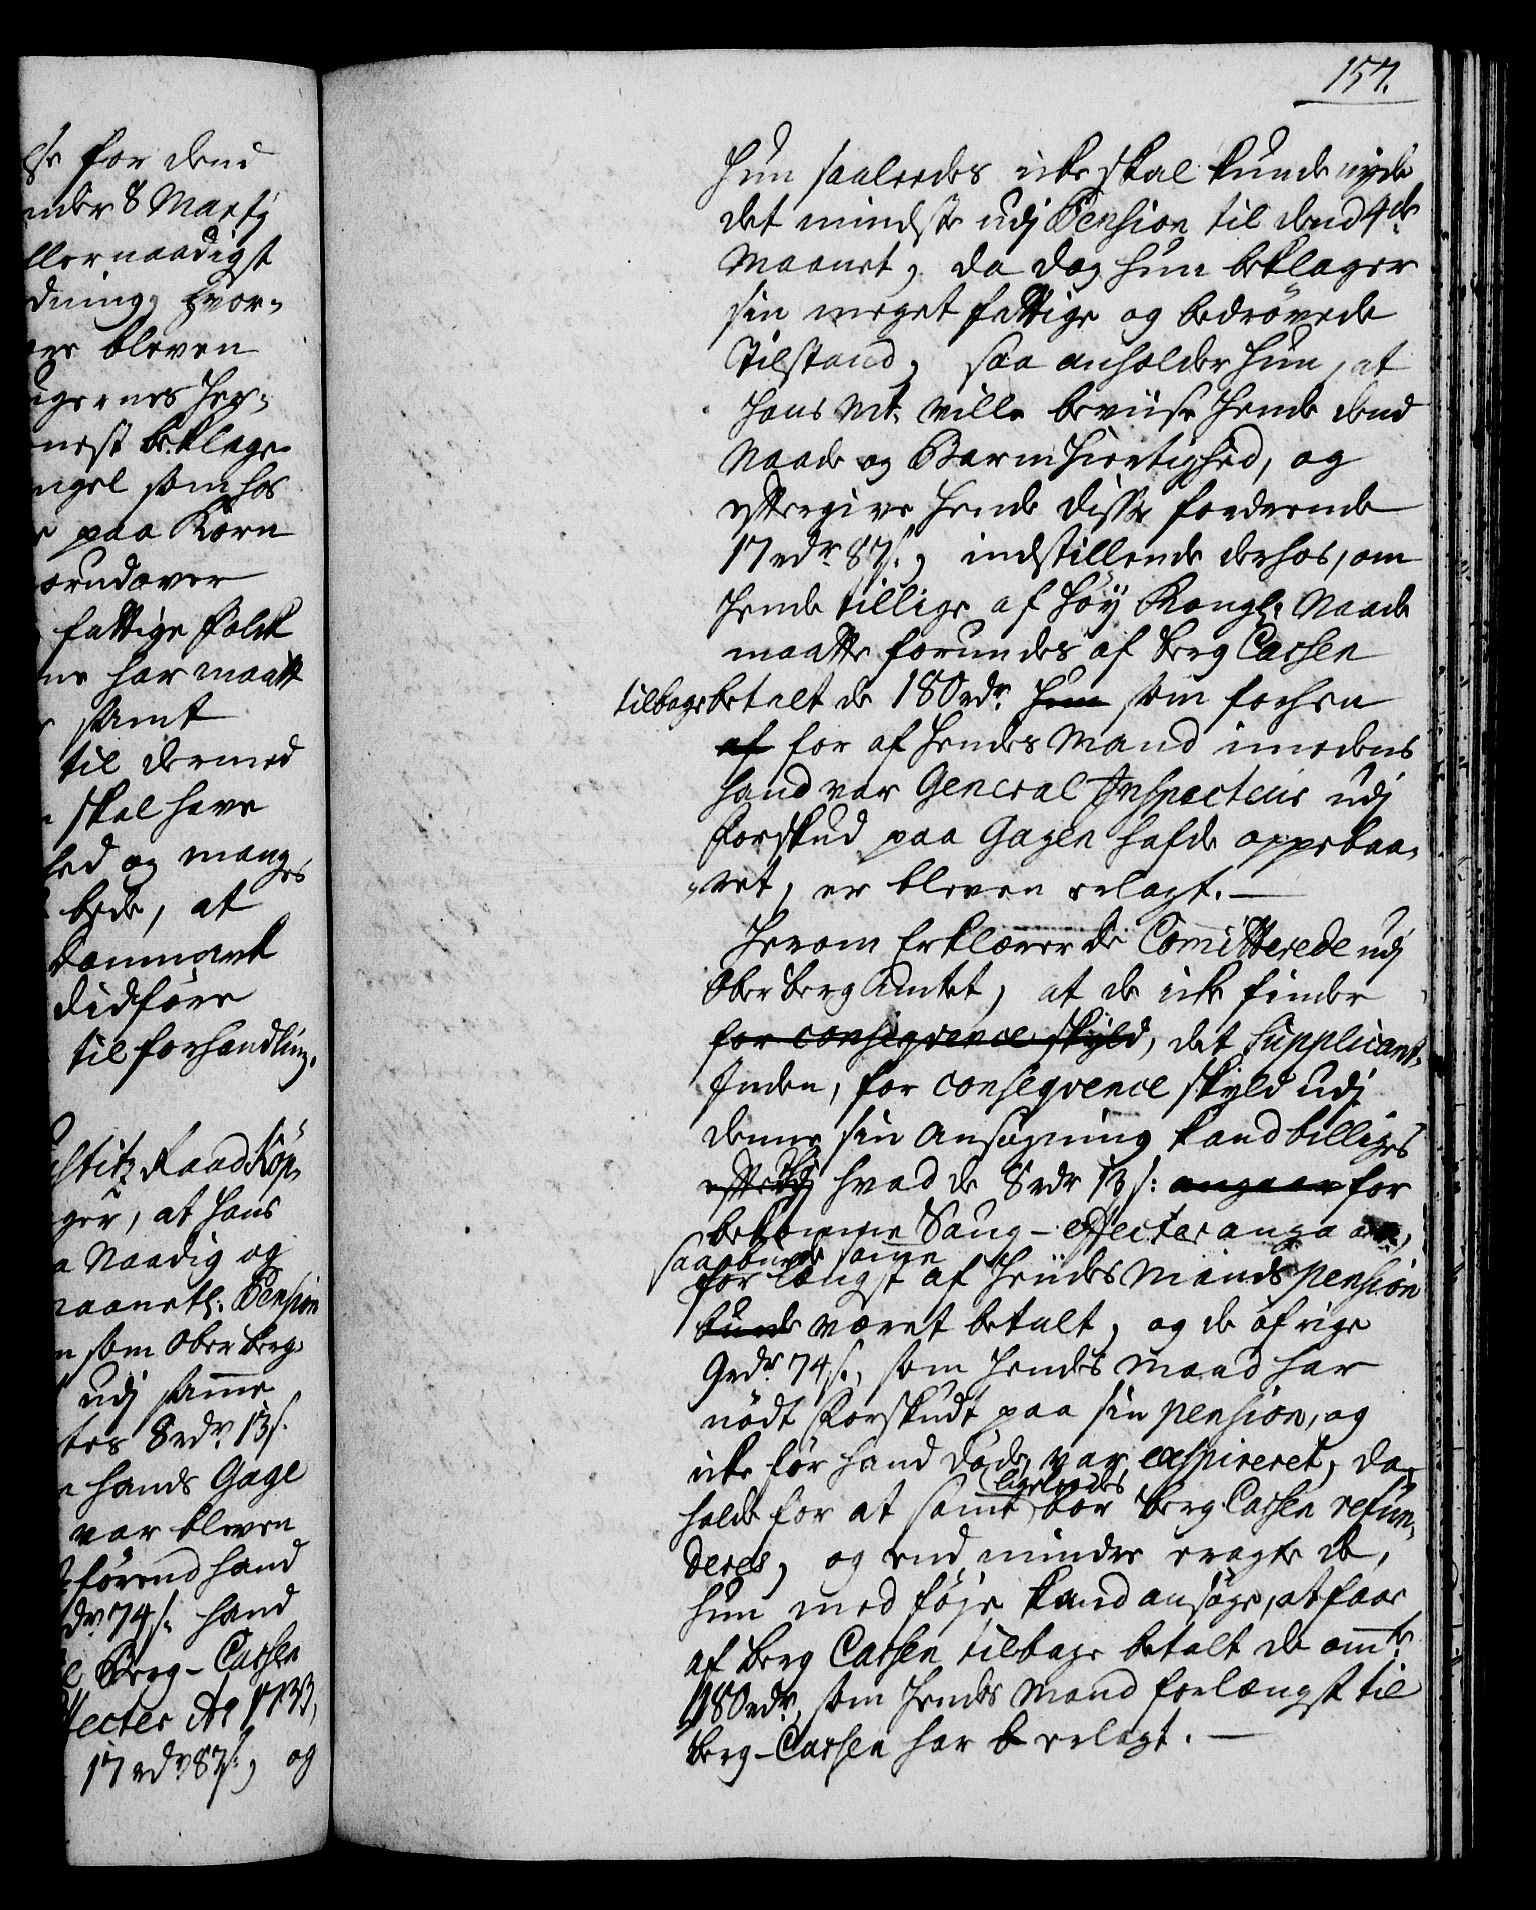 lse for dend
nder 8 Martj
llernaadigst
dning, hvor-
ner bleven
igernes her-
nest beklage
ngel som hos
e paa Korn
orudover
fattige Folk
ne har maatt
samt
til dermed
skal have
hed og manges
bede, at
Danmark
didføre
til forhandling.
ustitz Raad Köp,
ger, at hans
a Naadig og
maanetl. Pension
n som Ober Berg-
udj samme
tes 8 rdr 13 s.
n hands Gage
var bleven
førend hand
dr 74 s. hand
l Berg-Cassen
ffecter Ao 1733,
17 rdr 87 s., og
157.
hun saaleedes icke skal kunde nyde
det mindste udj Pension til dend 4de
Maanet, da dog hun beklager
sin meget fattige og bedrøvede
Tilstand, saa anholder hun, at
Hans Mt. ville beviise hende dend
Naade og Barmhiertighed, og
eftergive hende disse fordrende
17 rdr 87 s., indstillende derhos, om
hende tillige af høy Kongl. Naade
maatte forundes af Berg Cassen
tilbagebetalt de 180 rdr. hun som forhen
af for af hendes Mand imedens
hand var General Inspecteur udj
Forskud paa Gagen hafde oppebaa-
ret, er bleven erlagt.
Herom Erklærer de Comitterede udj
Ober Berg Amtet, at de icke finder
for conseqvence skyld, det Supplicant-
Inden, for conseqvence skyld udj
denne sin Ansøgning kand billiges
efterdj hvad de 8 rdr 13 s: angaar for
bekomne Saug-effecter angaar,
saa burde samme
for længst af hendes Mands pension
kunde været betalt, og de øfrige
9 rdr 74 s., som hendes Mand har
nødt Forskudt paa sin pension, og
icke før hand døde, var expireret, da
ligeleedes
holde for at samt bør Berg Cassen refun-
deres, og end mindre eragte de,
hun med føje kand ansøge, at faae
af Berg Cassen tilbage betalt de ommte
180 rdr, som hendes Mand forlængst til
Berg-Cassen har b erlagt.